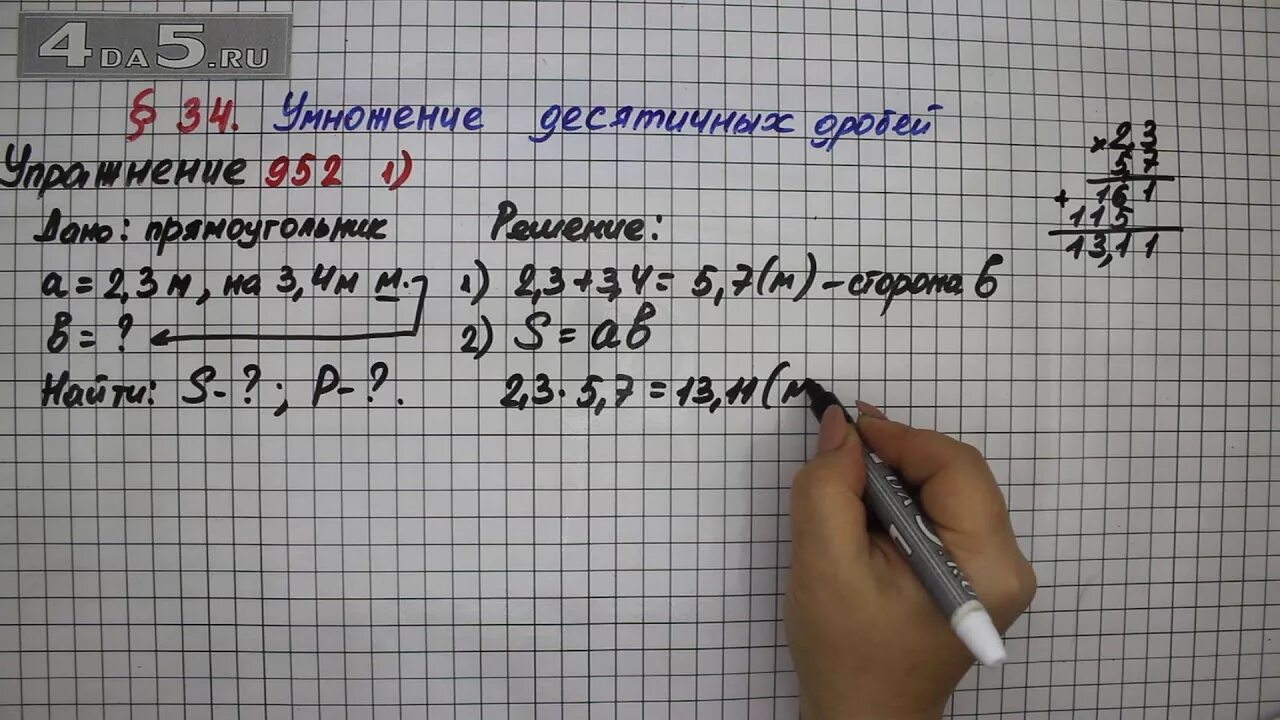 4DA5.RU
§ 34. Умножение десятичных дробей
Упражнение 952 1)
Дано: прямоугольник
a = 2,3 м, на 3,4 м м.
b = ?
Найти: S - ? ; P - ?.
Решение:
1) 2,3 + 3,4 = 5,7 (м) - сторона b
2) S = ab
2,3 · 5,7 = 13,11 (м
× 2,3
5,7
+ 161
115
13,11